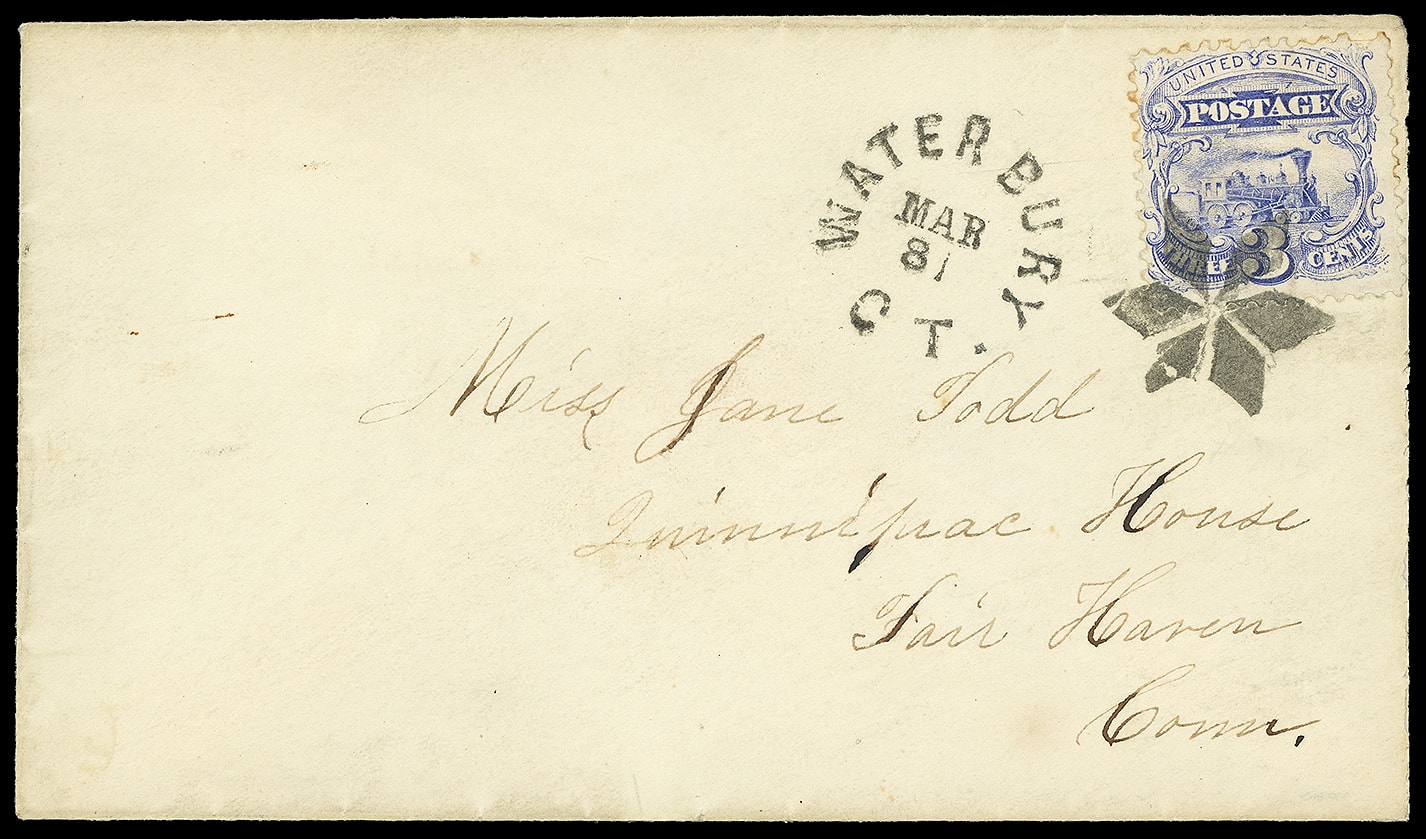 UNITED STATES
POSTAGE
THREE 3 CENTS
WATERBURY
MAR
81
CT.
Miss Jane Todd
Quinnipiac House
Fair Haven
Conn.